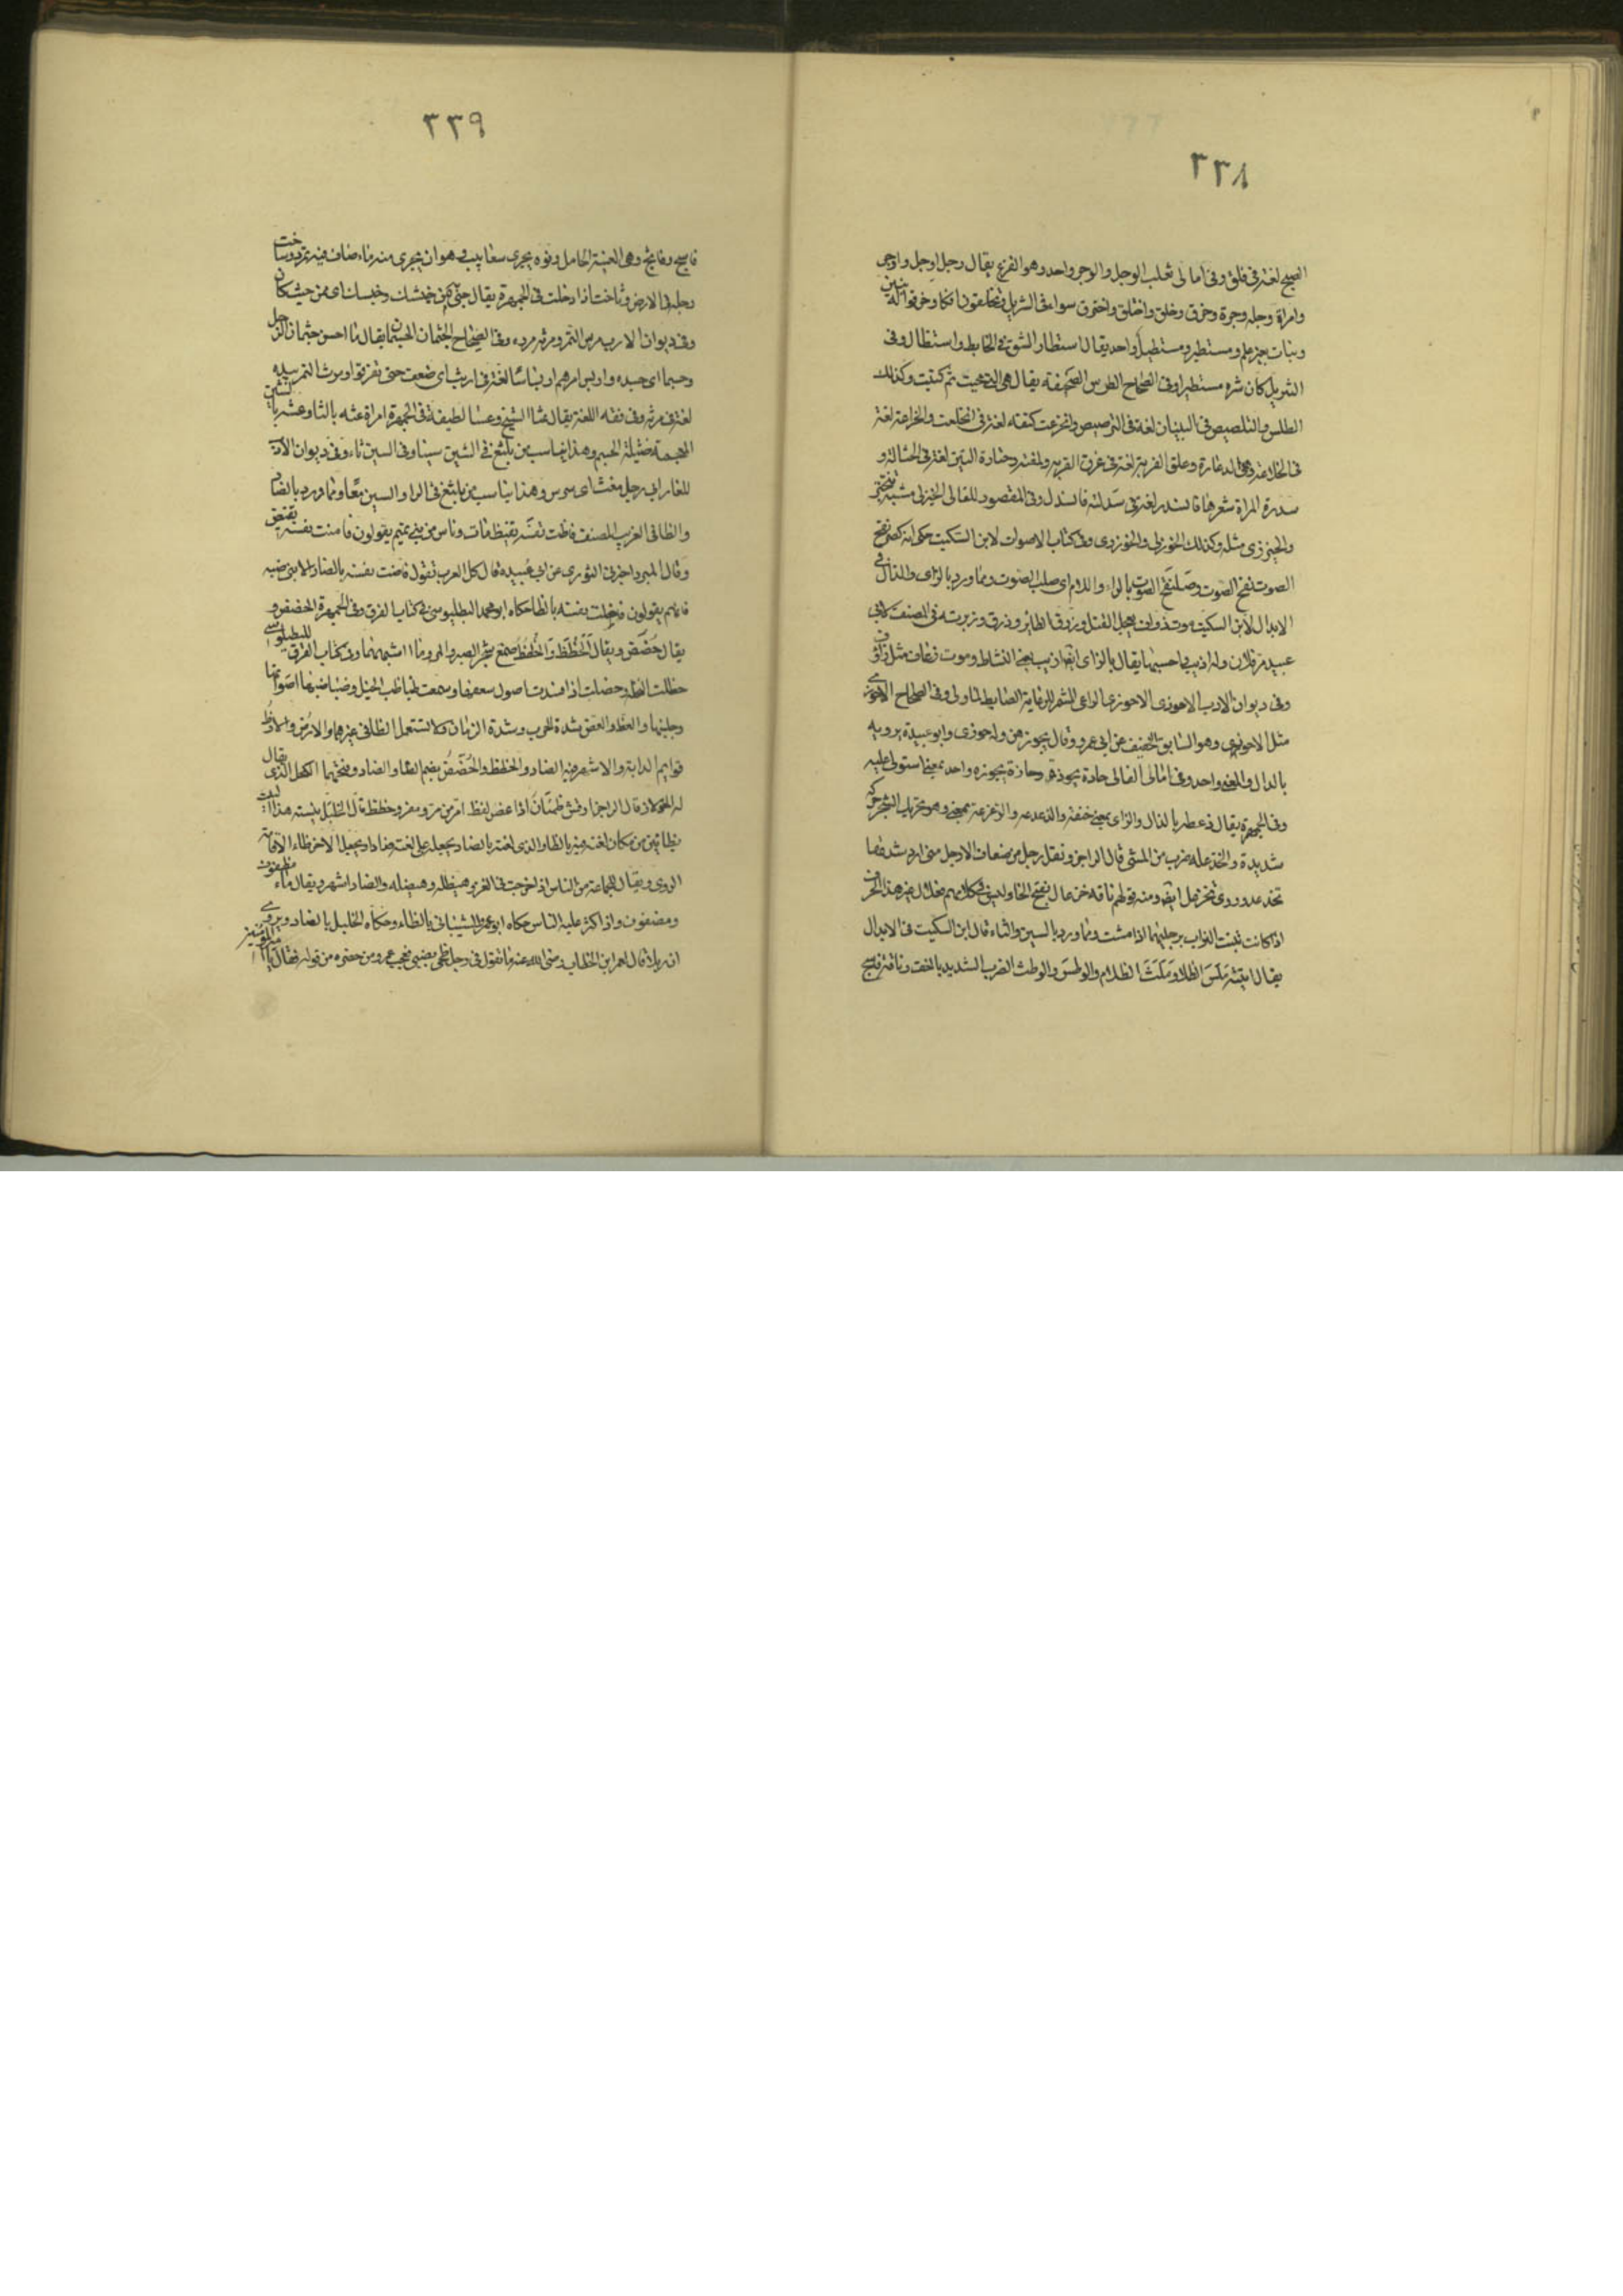 ٣٣٨
الصبح لغة فى فلق وفى امالى ثعلب الوجل والوجر واحد وهو الفزع يقال رجل اوجل واوجر
وامراة وجلة وجرة وخرق وخلق واختلق واخترق سواء فى التنزيل وتخلقون افكا وخرقوا له بنين
وبنات بغير علم ومستطير ومستطيل واحد يقال استطار الشق فى الحايط واستطال وفى
التنزيل كان شره مستطيرا وفى الصحاح الطرس الصحيفة يقال هى التى محيت ثم كتبت وكذلك
الطلس والتلصيص فى البنيان لغة فى الترصيص وانخرعت كتفه لغة فى انخلعت والخراعة لغة
فى الخلاعة وهى الدعارة وعلق القربة لغة فى عرق القربة وحثارة التبن لغة فى الحثالة و
سدرة المراة شعرها فانسدر لغة فى سدلته فانسدل وفى المقصور للقالى الخيزلى مشية تبختر
والخيزرى مثله وكذلك الخوزلى والخوزرى وفى كتاب الاصوات لابن السكيت
الصوت بالراء واللام اى صلب الصوت ومما ورد بالزاى والذال فى
الابدال لابن السكيت موت ذواف يعجل القتل وزرق الطائر وذرق وزبرته فى المصنف لابى
عبيد يقال بالزاى النشاط وموت زعاف مثل زؤاف
وفى ديوان الادب الاحوذى الاحوزى الراعى المشمر للرعاية الضابط لما ولى وفى الصحاح الاحوزى
مثل الاحوذى وهو السايق الخفيف عن ابى عمرو وقال يحوزهن وله حوذى وابو عبيدة يرويه
بالذال والمعنى واحد وفى امالى القالى حاذه يحوذه وحازه يحوزه واحد بمعنى استولى عليه
وفى الجمهرة يقال ذعطه بالذال والزاى بمعنى خنقه والذعذعة والزعزعة بمعنى وهو تحريك الشجر حركة
شديدة والخذعلة ضرب من المشى قال الراجز ونقل رجل من ضعاف الارجل متى ارد شدتها
تخذعل وروى تخزعل ايضا ومنه قولهم ناقة خزعال بفتح الخا وليس فى كلامهم فعلال غير هذا الحرف
اذا كانت تنبث التراب برجليها اذا مشت ومما ورد بالسين والثاء قال ابن السكيت فى الابدال
يقال اتيته ملس الظلام وملث الظلام والوطس والوطث الضرب الشديد بالخف وناقة فاسج
٣٣٩
فاسجه وفاثج وهى الفتية الحامل وفوه يجرى سعابيب وهو ان يجرى منه ماء صاف فيه تمدد وساخت
رجله فى الارض وثاخت اذا دخلت فى الجمهرة يقال
وفى ديوان الادب مرس التمر ومرثه مرده وفى الصحاح الجثمان الجسمان يقال ما احسن جثمان الرجل
وجسمانه اى جسده واربس امرهم اربساسا لغة فى اربث اى ضعف حتى تفرقوا ومرث التمر بيده
لغة فى مرسه وفى فقه اللغة يقال عثا الشيخ وعسا لطيفة فى الجمهرة امراة عثة بالثا وعشة بالشين
المعجمة ضئيلة الجسم وهذا يناسب من يلثغ فى الشين سينا وفى السين ثاء وفى ديوان الادب
للفارابى رجل وهذا يناسب من يلثغ فى الرا والسين معا ومما ورد بالضاد
والظا فى الغريب المصنف فاظت نفسه تفيظ مات وناس من بنى تميم يقولون فاضت نفسه تفيض
وقال المبرد اخبرنى التوزى عن ابى عبيدة قال كل العرب تقول فاضت نفسه بالضاد الا بنى ضبة
فانهم يقولون فاظت نفسه بالظا حكاه ابو محمد البطليوسى فى كتاب الفرق وفى الجمهرة الحضض و
يقال حضض ويقال الحظظ والحظظ صمغ شجر الصبر وفى كتاب الفرق للبطليوسى
حظلت النخلة وحضلت اذا فسدت اصول سعفها وسمعت ظباظب الخيل وضباضبها اصواتها
وجلبتها والعظ والعض شدة الحرب وشدة الزمان ولا تستعمل الظا فى غيرهما والارض والارظ
قوايم الدابة والاشهر فيه الضاد والحظظ والحضض بضم الظا والضاد وفتحهما الكحل الذى يقال
له الخولان قال الراجز ارقش ظمان اذا عصر لفظ امر من مر ومقر وحظظ قال الخليل ينشد هذا البيت
بظائين من كان لغته فيه بالظا والذى لغته بالضاد يجعله على لغته ضادا ويجعل الاخر ظاء لاقامة
الروى ويقال للجماعة من الناس اذا خرجت فى الغزو هيظلة وهيضلة والضاد اشهر ويقال ماء مظفوف
ومضفوف اذا كثر عليه الناس حكاه ابو عمرو الشيبانى بالظاء وحكاه الخليل بالضاد ويروى
ان رجلا قال لعمر ابن الخطاب رضى الله عنه ما تقول فى رجل ظحى بضبى فعجب عمر ومن حضره من قوله فقال يا امير المؤمنين